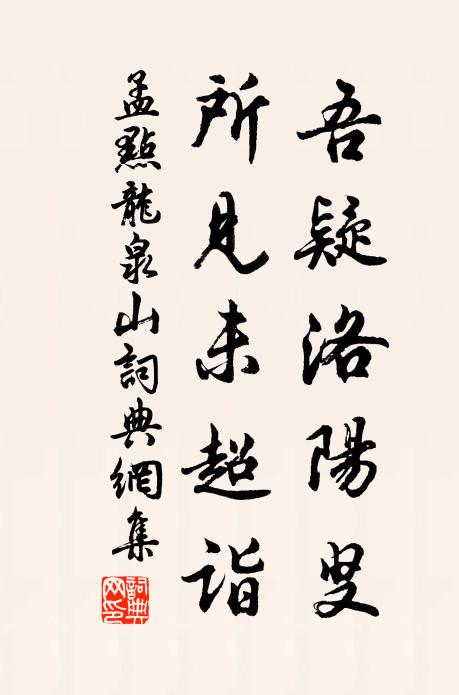 吾疑洛陽叟
所見未超詣
孟點龍泉山詞典網集
詞典网印